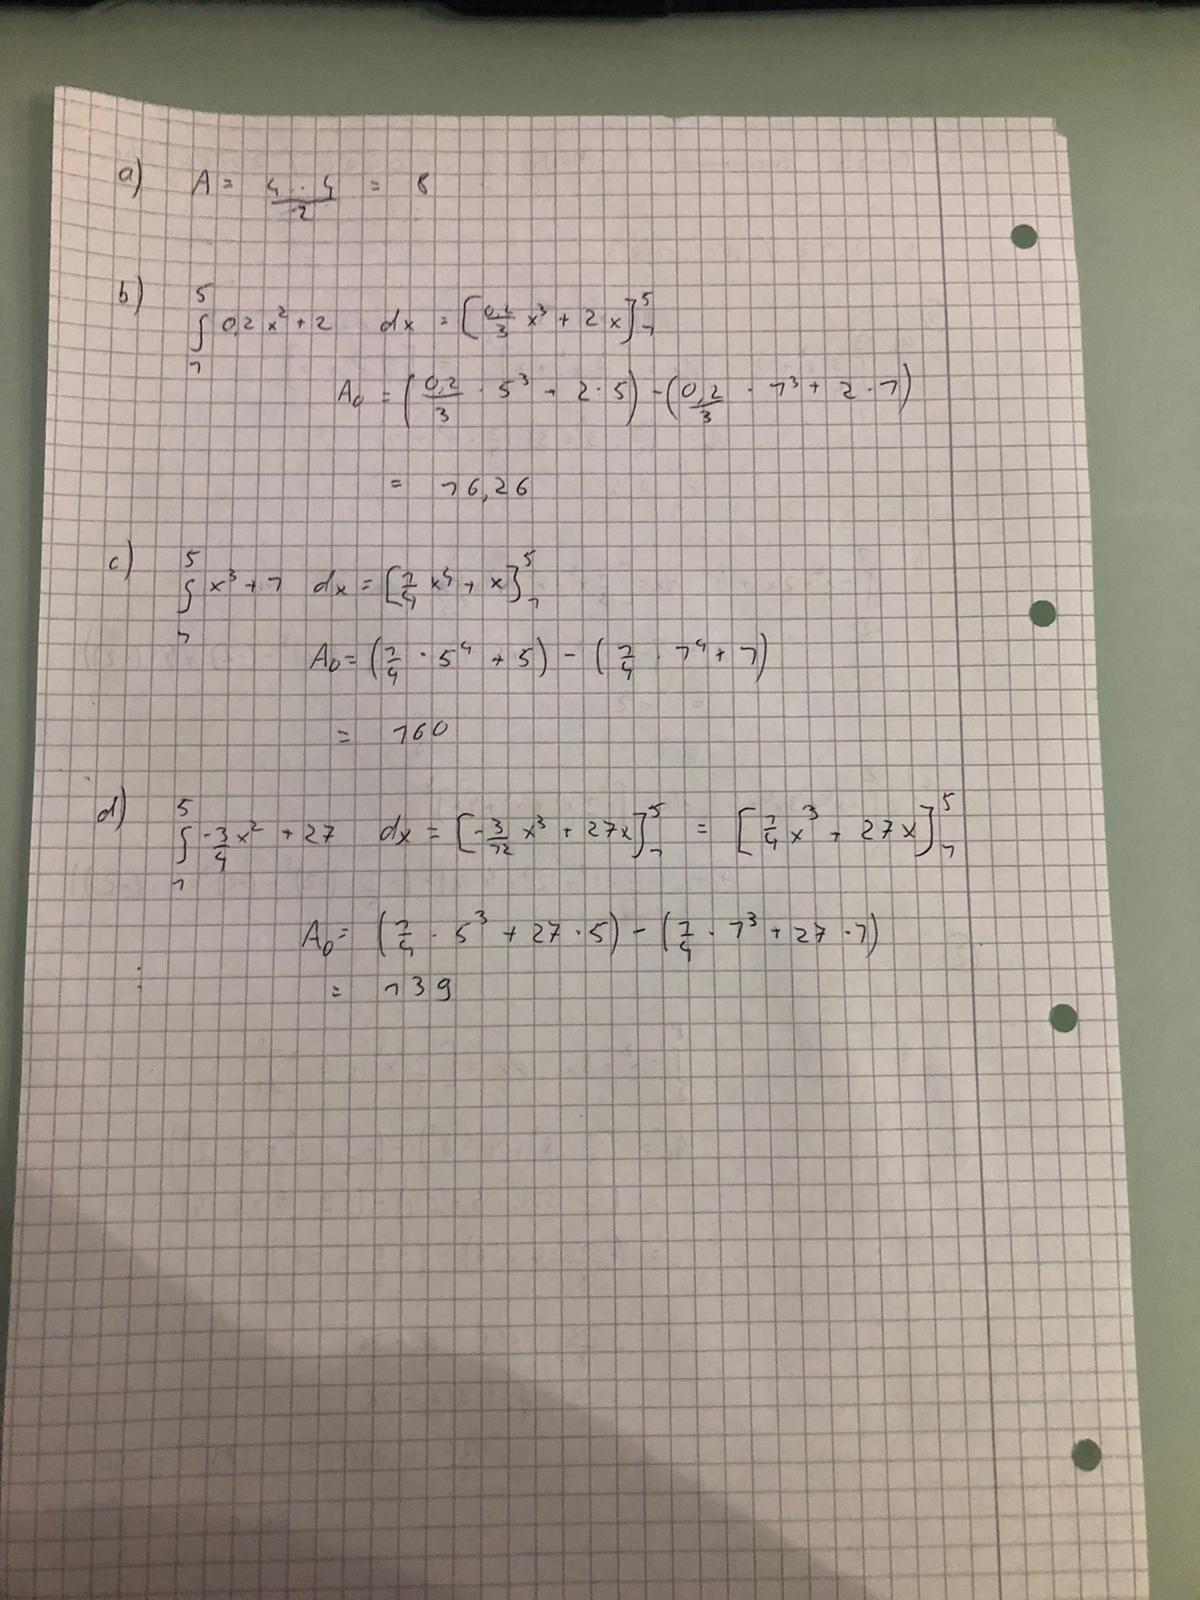 a) A = (4 · 4)/2 = 8
b) ∫₁⁵ 0,2x² + 2 dx = [0,2/3 x³ + 2x]₁⁵
A₀ = (0,2/3 · 5³ + 2 · 5) - (0,2/3 · 1³ + 2 · 1)
= 16,26
c) ∫₁⁵ x³ + 1 dx = [1/4 x⁴ + x]₁⁵
A₀ = (1/4 · 5⁴ + 5) - (1/4 · 1⁴ + 1)
= 160
d) ∫₁⁵ -3/4 x² + 27 dx = [-3/12 x³ + 27x]₁⁵ = [1/4 x³ + 27x]₁⁵
A₀ = (1/4 · 5³ + 27 · 5) - (1/4 · 1³ + 27 · 1)
= 139